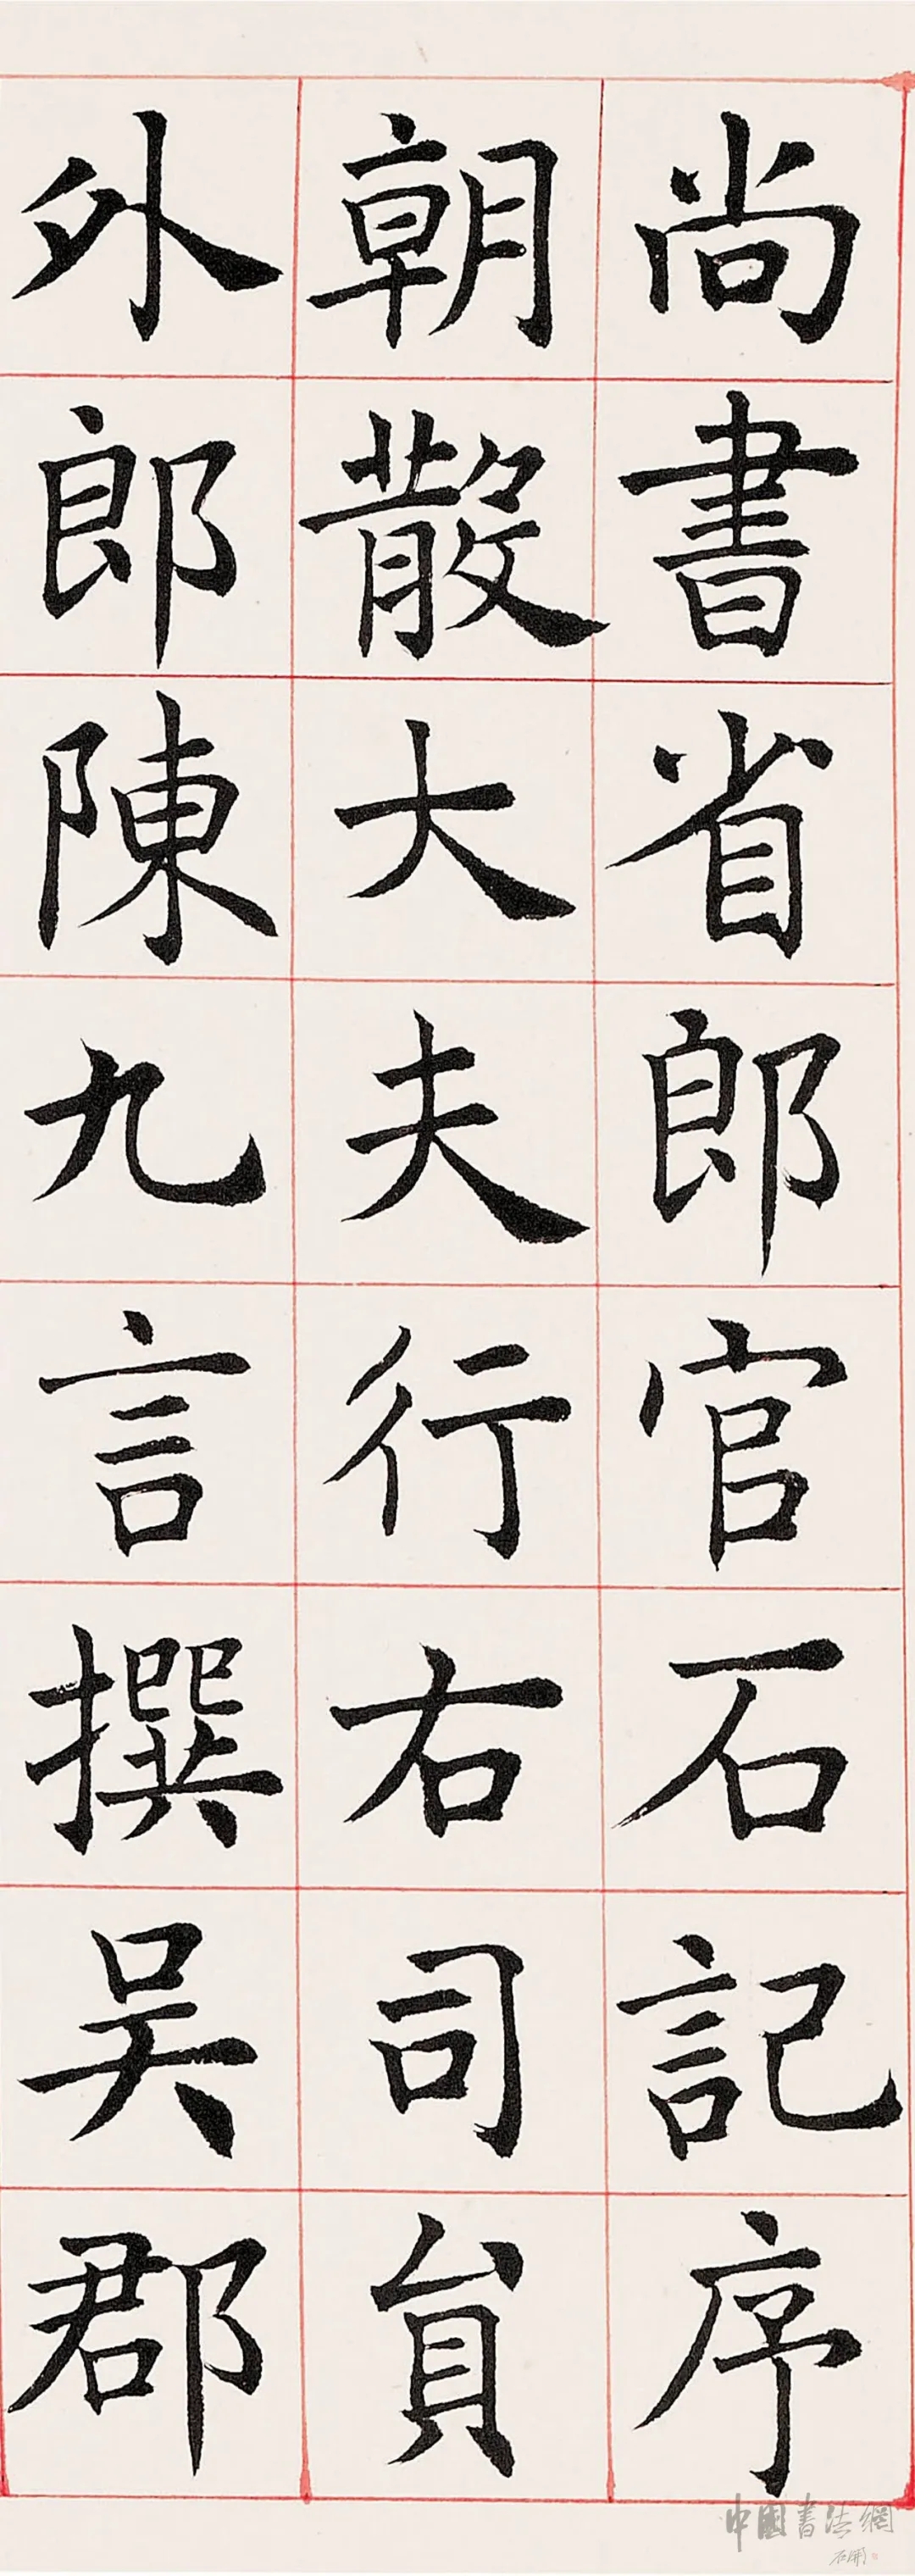 尚書省郎官石記序
朝散大夫行右司員
外郎陳九言撰吳郡
中國書法網